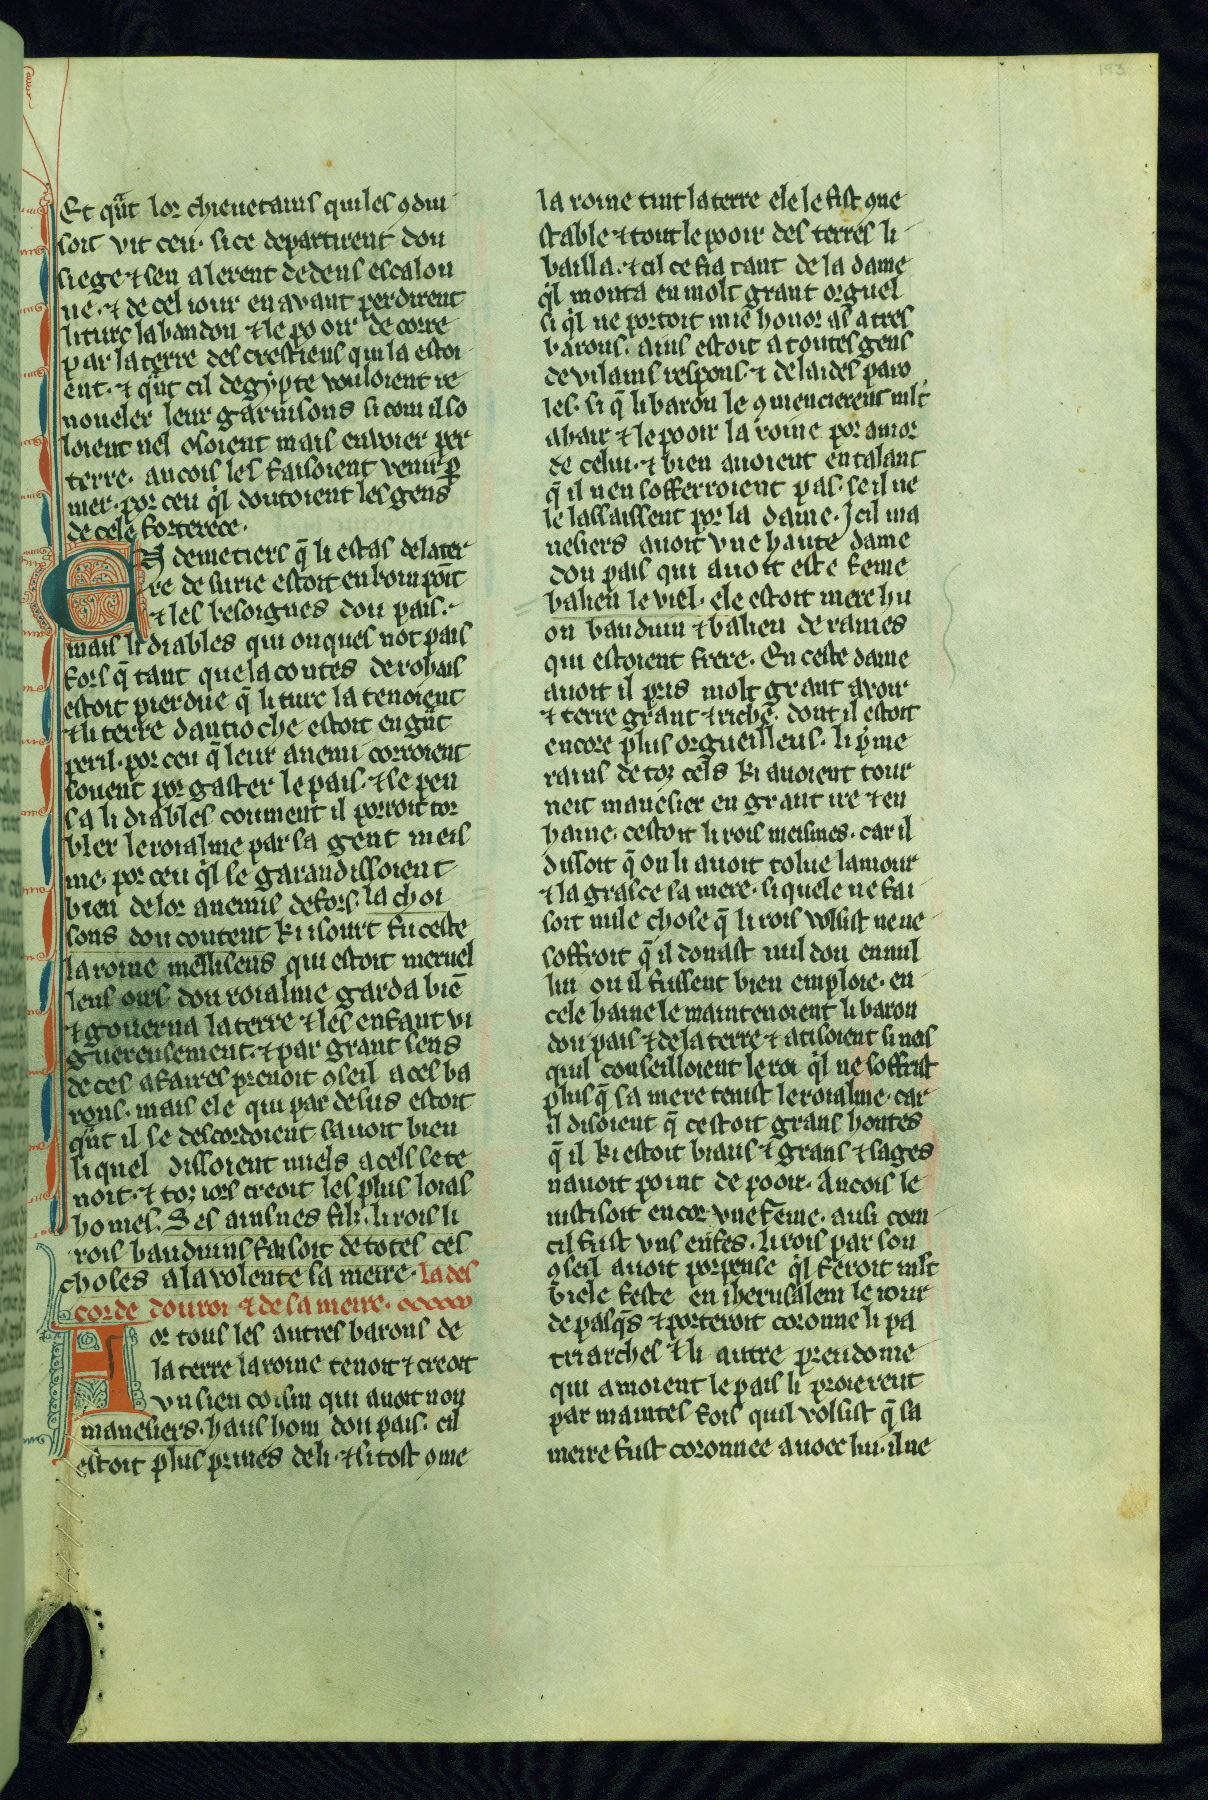 Et q̃nt lor chieuetains quiles ꝯdui
soit vit ceu· si ce departirent dou
siege ⁊ sen alerent dedens escalou
ne· ⁊ de cel iour en auant perdirent
li turc labandon ⁊ le pooir de corre
par la terre des crestiens qui la estoi
ent· ⁊ q̃nt cil degypte vouloient re
noueler leur garnisons si com il so
loient nel osoient mais enuoier per
terre· ancois les faisoient venir ꝑ
mer· por ceu q̃l doutoient les gens
de cele forterece·
En demetiers q̃ li estas de la ter
re de surie estoit en boin point
⁊ les besoignes dou pais·
mais li diables qui onques not pais
fors q̃ tant que la contes de rohais
estoit pierdue q̃ li turc la tenoient
⁊ li terre dantioche estoit en g̃nt
peril· por ceu q̃ leur anemi corroient
souent por gaster le pais· ⁊ se pen
sa li diables coument il porroit tor
bler le roialme par sa gent meis
me· por ceu q̃l se garandissoient
bien de lor anemis defors· la choi
sons dou content ki i sourt fu ceste
la roine mellisens qui estoit meruel
leus oirs dou roialme garda biẽ
⁊ gouerna la terre ⁊ les enfant vi
guereusement· ⁊ par grant sens
de ces afaires prenoit ꝯseil a ces ba
rons· mais ele qui par desus estoit
q̃nt il se descordoient sauoit bien
li quel dissoient miels a cels se te
noit· ⁊ toz iors creoit les plus loials
homes· Ses ainsnes filz· li rois li
rois bauduins faisoit de totes ces
choses a la volente sa meire· La des
corde dou roi ⁊ de sa meire·
For tous les autres barons de
la terre la roine tenoit ⁊ creoit
vn sien cousin qui auoit non
manesiers· haus hom dou pais· cil
estoit plus priues de li· ⁊ si tost ꝯme
la roine tint la terre ele le fist ꝯne
stable ⁊ tout le pooir des terres li
bailla· ⁊ cil ce fia tant de la dame
q̃l monta en molt grant orguel
si q̃l ne portoit mie honor as atres
barons· ains estoit a toutes gens
de vilains respons· ⁊ de laides paro
les· si q̃ li baron le ꝯmencierent mlt
a hair ⁊ le pooir la roine por amor
de celui· ⁊ bien auoient en talant
q̃ il nen sofferroient pas· se il ne
le lassaissent por la dame· Icil ma
nesiers auoit vne haute dame
dou pais qui auoit este feme
balien le viel· ele estoit mere hu
on bauduin ⁊ balieu de raines
qui estoient frere· En ceste dame
auoit il pris molt grant auoir
⁊ terre grant ⁊ riche· dont il estoit
encore plus orgueilleus· li pme
rains de toz cels ki auoient tour
neit manesier en grant ire ⁊ en
haine· cestoit li rois meismes· car il
dissoit q̃ on li auoit tolue lamour
⁊ la grasce sa mere· si quele ne fai
soit nule chose q̃ li rois volsist ne ne
soffroit q̃ il donast nul don en nul
liu ou il fussent bien emploie· en
cele haine le maintenoient li baron
dou pais ⁊ de la terre ⁊ atisoient si neis
quil conseilloient le roi q̃l ne soffrist
plus q̃ sa mere tenist le roialme· car
il disoient q̃ cestoit grans hontes
q̃ il ki estoit biaus ⁊ grans ⁊ sages
nauoit point de pooir· Ancois le
iustisoit encor vne feme· ausi com
cil fust vns enfes· li rois par son
ꝯseil auoit porpense q̃l feroit mlt
biele feste en iherusalem le iour
de pasq̃s ⁊ porteroit coronne li pa
triarches ⁊ li autre preudome
qui amoient le pais li proierent
par maintes fois quil volsist q̃ sa
meire fust coronnee auoec lui· il ne